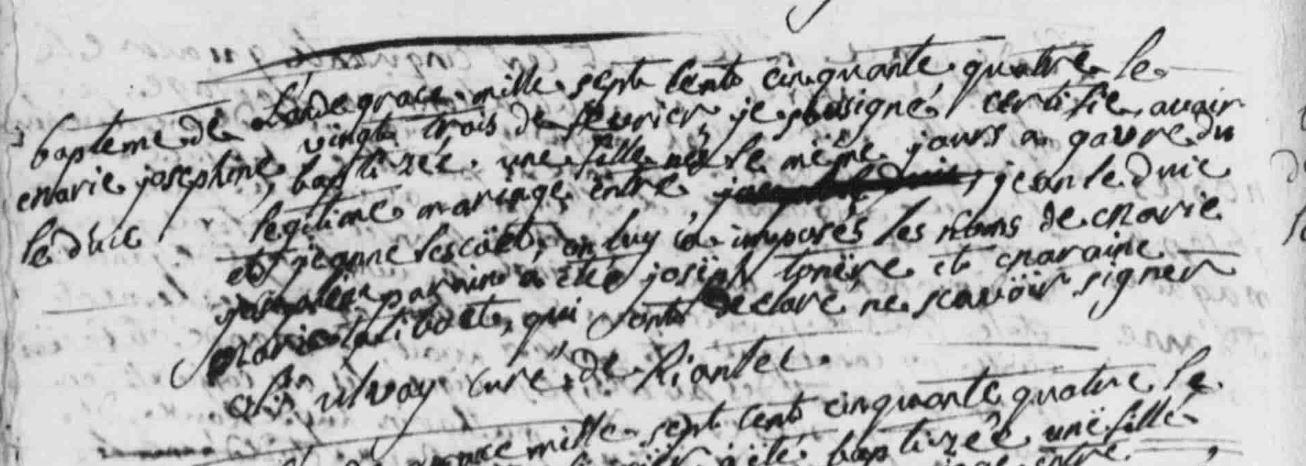 bapteme de
marie josephine
le duic
L'an de grace mille sept cents cinquante quatre le
vingt trois de fevrier, je sousigné certifie avoir
baptizée une fille née le même jours a gavre du
legitime mariage entre jean le duic
et jeanne lescoët, on luy a imposés les noms de marie
parain a été joseph tonère et maraine
marie talibart, qui ont declaré ne scavoir signer
curé de Riantec.
grace mille sept cents cinquante quatre le
a été baptizée une fille
entre